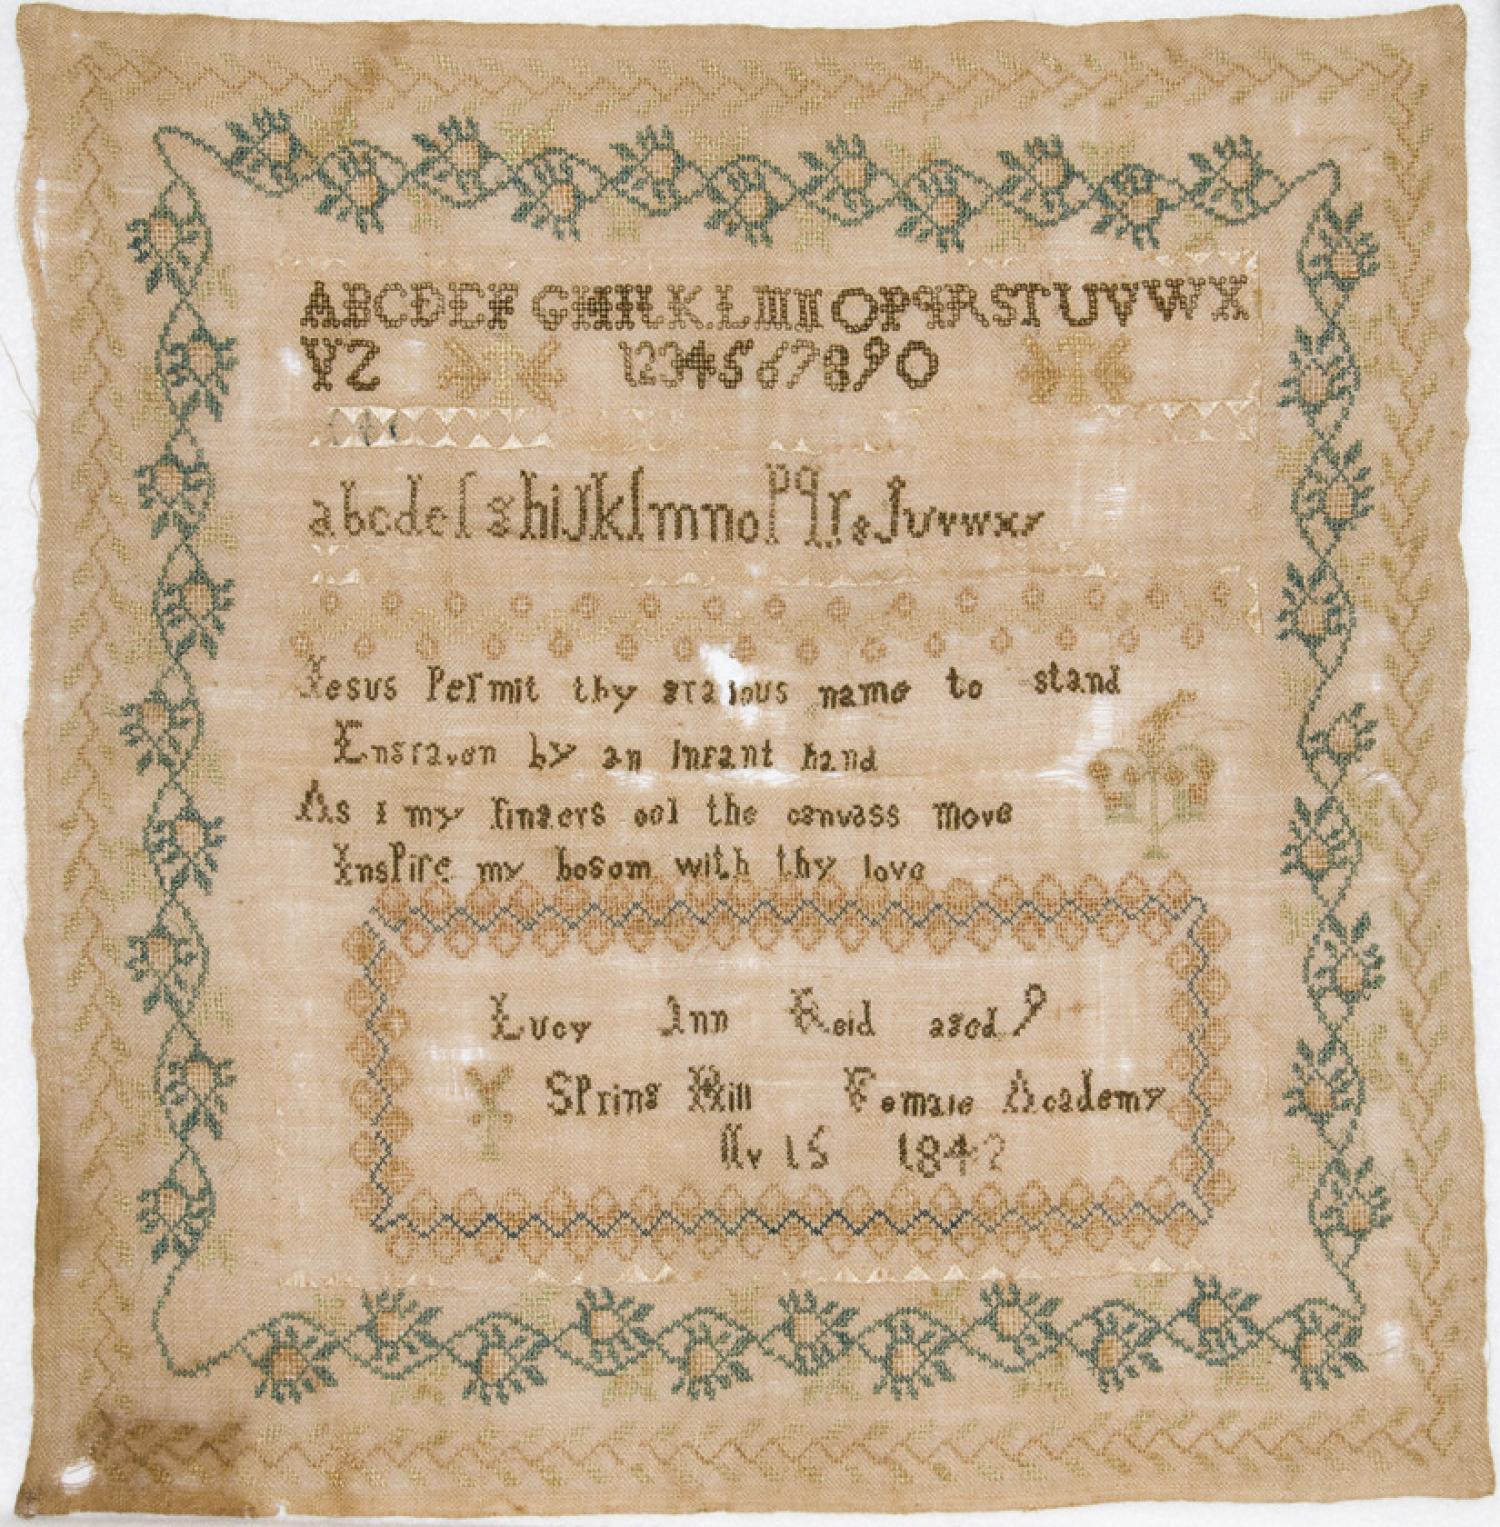 ABCDEFGHIKLMNOPQRSTUVWX
YZ 1234567890
abcdefghijklmnopqrstuvwxy
Jesus Permit thy gracious name to stand
Engraven by an infant hand
As i my fingers oel the canvass move
Inspire my bosom with thy love
Lucy Ann Reid aged 9
Spring Hill Female Academy
Nv 15 1842